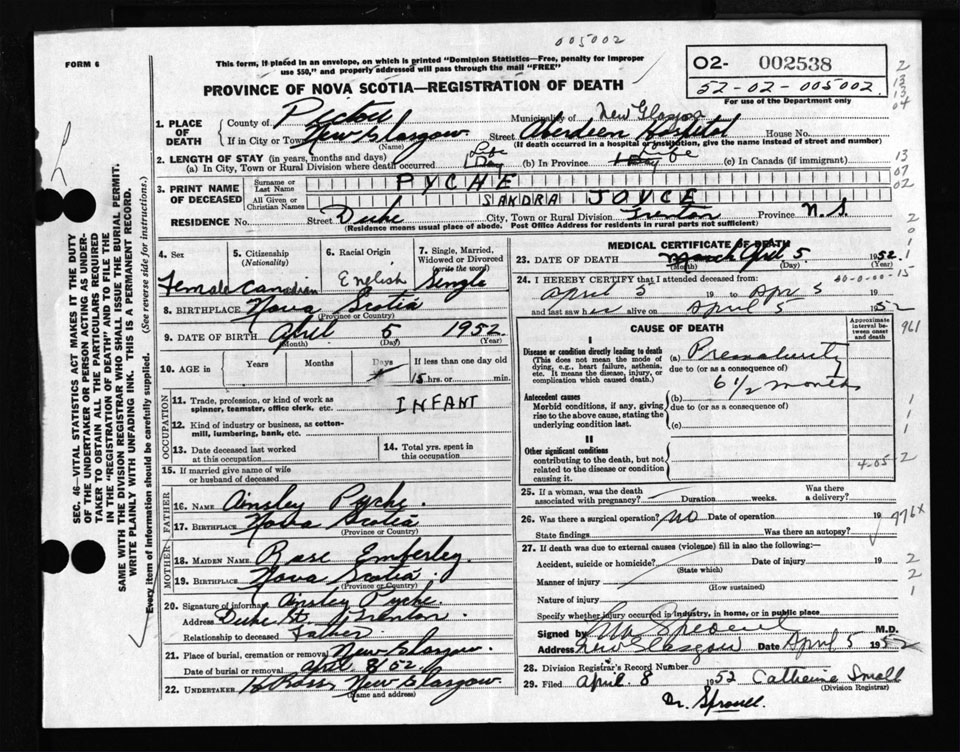 005002
FORM 6
This form, if placed in an envelope, on which is printed "Dominion Statistics—Free, penalty for improper
use $50," and properly addressed will pass through the mail "FREE"
PROVINCE OF NOVA SCOTIA—REGISTRATION OF DEATH
02- 002538
52-02-005002
For use of the Department only
1. PLACE OF DEATH
County of Pictou Municipality of New Glasgow
If in City or Town New Glasgow (Name) Street Aberdeen Hospital House No.
(If death occurred in a hospital or institution, give the name instead of street and number)
2. LENGTH OF STAY (in years, months and days)
(a) In City, Town or Rural Division where death occurred 1 Day (b) In Province Life (c) In Canada (if immigrant)
3. PRINT NAME OF DECEASED
Surname or Last Name PYCHE
All Given or Christian Names SANDRA JOYCE
RESIDENCE No. Street Duke City, Town or Rural Division Trenton Province N.S.
(Residence means usual place of abode. Post Office Address for residents in rural parts not sufficient)
4. Sex Female
5. Citizenship (Nationality) Canadian
6. Racial Origin English
7. Single, Married, Widowed or Divorced (write the word) Single
8. BIRTHPLACE Nova Scotia
(Province or Country)
9. DATE OF BIRTH April 5 1952
(Month) (Day) (Year)
10. AGE in Years Months Days If less than one day old
15 hrs. or min.
OCCUPATION
11. Trade, profession, or kind of work as spinner, teamster, office clerk, etc. INFANT
12. Kind of industry or business, as cotton-mill, lumbering, bank, etc.
13. Date deceased last worked at this occupation
14. Total yrs. spent in this occupation
15. If married give name of wife or husband of deceased
FATHER
16. NAME Ainsley Pyche.
17. BIRTHPLACE Nova Scotia
(Province or Country)
MOTHER
18. MAIDEN NAME Rose Emberley
19. BIRTHPLACE Nova Scotia
(Province or Country)
20. Signature of informant Ainsley Pyche.
Address Duke St. Trenton
Relationship to deceased Father
21. Place of burial, cremation or removal New Glasgow.
Date of burial or removal April 8/52
22. UNDERTAKER Ross New Glasgow.
(Name and address)
MEDICAL CERTIFICATE OF DEATH
23. DATE OF DEATH March April 5 1952
(Month) (Day) (Year)
24. I HEREBY CERTIFY that I attended deceased from:
April 5 19 to Apr 5 19
and last saw her alive on April 5 1952
CAUSE OF DEATH
Approximate interval between onset and death
I
Disease or condition directly leading to death
(This does not mean the mode of dying, e.g., heart failure, asthenia, etc. It means the disease, injury, or complication which caused death.)
(a) Prematurity
due to (or as a consequence of)
6 1/2 months
Antecedent causes
Morbid conditions, if any, giving rise to the above cause, stating the underlying condition last.
(b)
due to (or as a consequence of)
(c)
II
Other significant conditions
contributing to the death, but not related to the disease or condition causing it.
4-05-2
961
25. If a woman, was the death associated with pregnancy? Duration weeks. Was there a delivery?
26. Was there a surgical operation? No Date of operation 19
State findings Was there an autopsy?
776X
27. If death was due to external causes (violence) fill in also the following:—
Accident, suicide or homicide? Date of injury 19
(State which)
Manner of injury
(How sustained)
Nature of injury
Specify whether injury occurred in industry, in home, or in public place
Signed by M.D.
Address New Glasgow Date April 5 1952
28. Division Registrar's Record Number
29. Filed April 8 1952 Catherine Small
(Division Registrar)
Dr. Sproull.
SEC. 46—VITAL STATISTICS ACT MAKES IT THE DUTY
OF THE UNDERTAKER OR PERSON ACTING AS UNDERTAKER
TO OBTAIN ALL THE PARTICULARS REQUIRED
IN THE "REGISTRATION OF DEATH" AND TO FILE THE
SAME WITH THE DIVISION REGISTRAR WHO SHALL ISSUE THE BURIAL PERMIT.
WRITE PLAINLY WITH UNFADING INK. THIS IS A PERMANENT RECORD.
Every item of information should be carefully supplied. (See reverse side for instructions.)